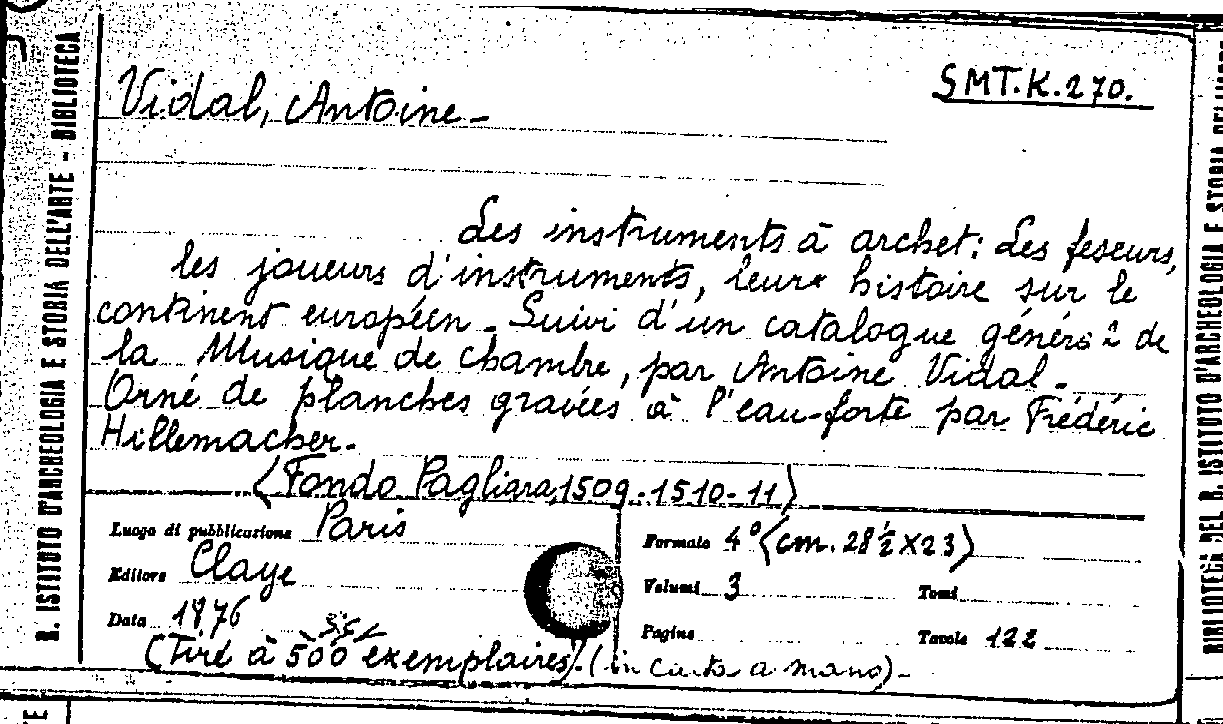 R. ISTITUTO D'ARCHEOLOGIA E STORIA DELL'ARTE - BIBLIOTECA
SMT.K.270.
Vidal, Antoine-
Les instruments à archet: Les feseurs,
les joueurs d'instruments, leur histoire sur le
continent européen. Suivi d'un catalogue général de
la Musique de chambre, par Antoine Vidal.-
Orné de planches gravées à l'eau-forte par Frédéric
Hillemacher.-
(Fondo Pagliara, 1509-1510-11)
Luogo di pubblicazione Paris
Editore Claye
Data 1876
(Tiré à 500 exemplaires). (in carta a mano)-
Formato 4° (cm. 28½X23)
Volumi 3 Tomi
Pagine Tavole 122
BIBLIOTECA DEL R. ISTITUTO D'ARCHEOLOGIA E STORIA